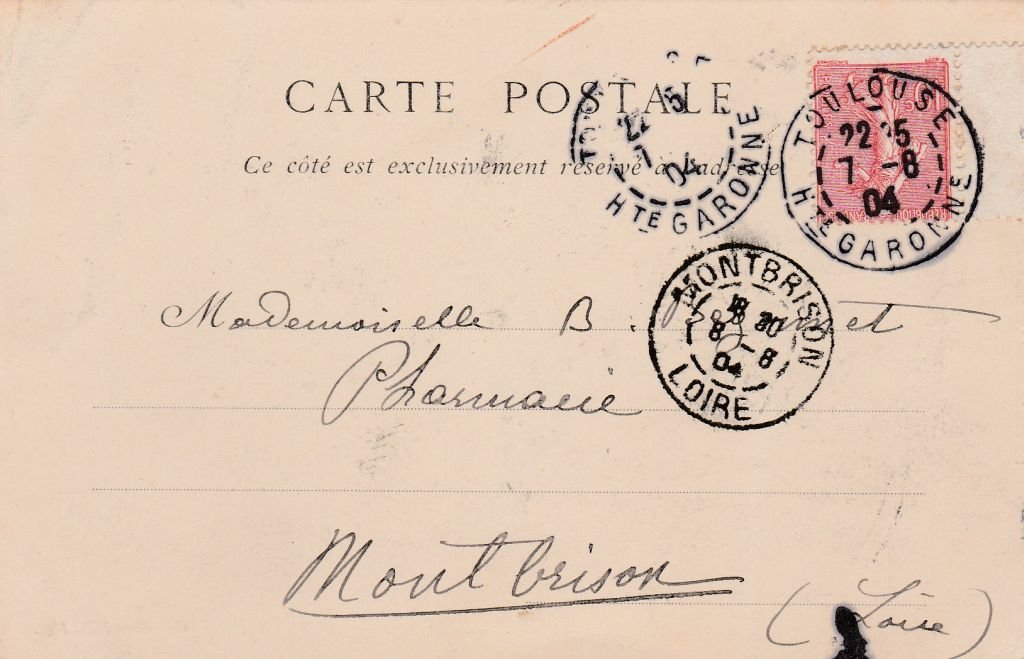 CARTE POSTALE
Ce côté est exclusivement réservé à l'adresse
TOU
22 5
04
HTE GARONNE
TOULOUSE
22 5
7 -8
04
HTE GARONNE
MONTBRISON
8 -8
04
LOIRE
Mademoiselle B.
Pharmacie
Montbrison
(Loire)